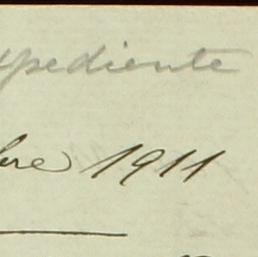 xpediente
bre 1911